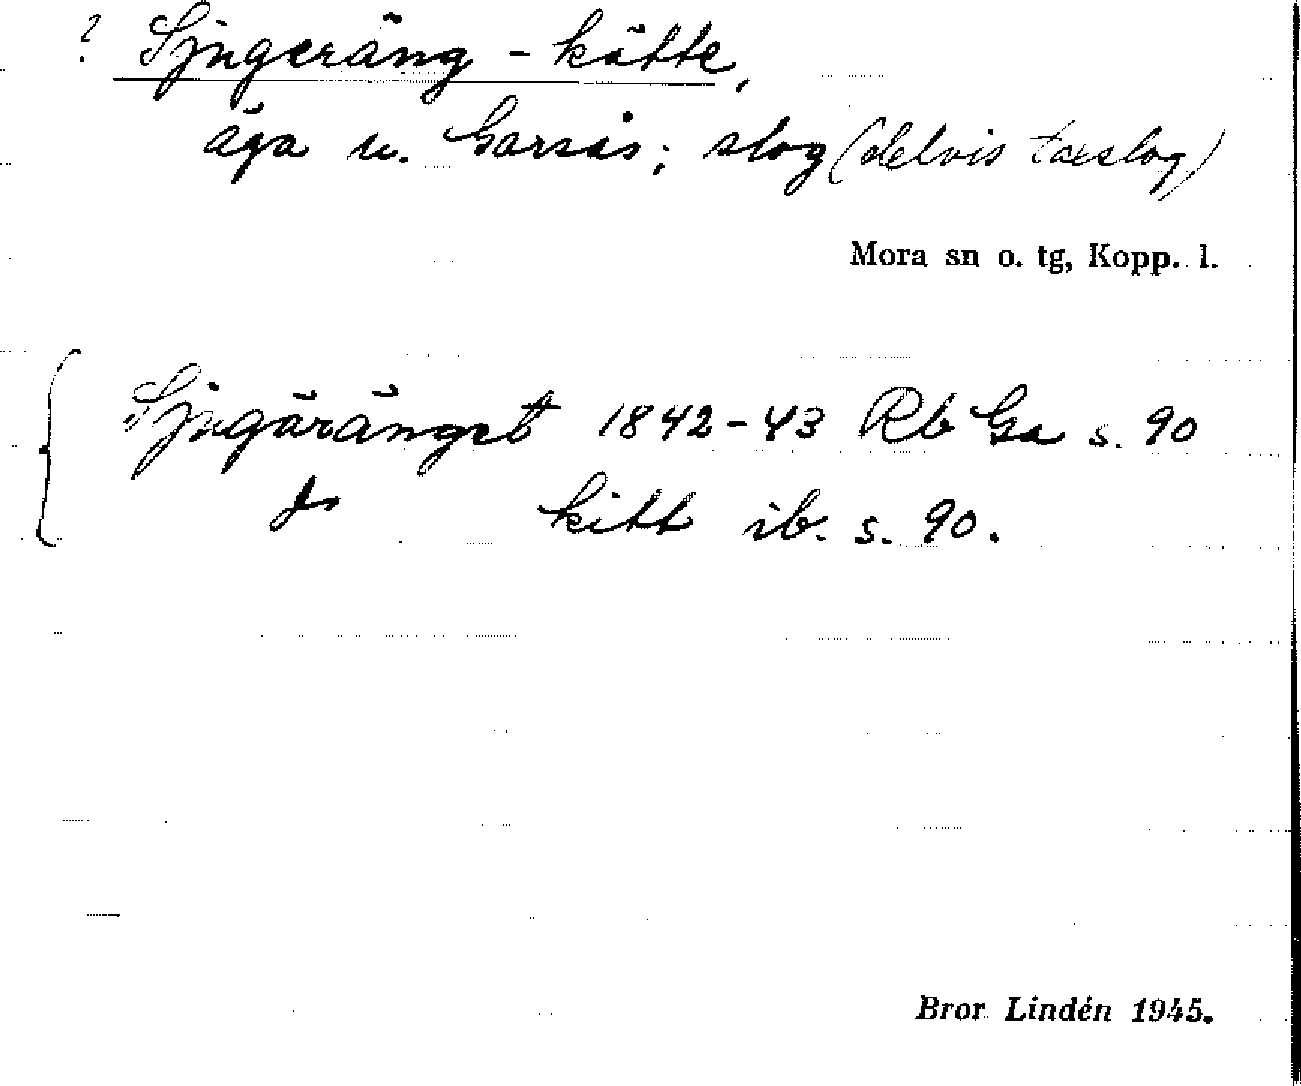 ? Sjugeräng - kätte,
äga u. Garsås; slog (delvis taeslog)
Mora sn o. tg, Kopp. l.
Sjugäränget 1842-43 Rb Ga s. 90
Js kitt ib. s. 90.
Bror Lindén 1945.